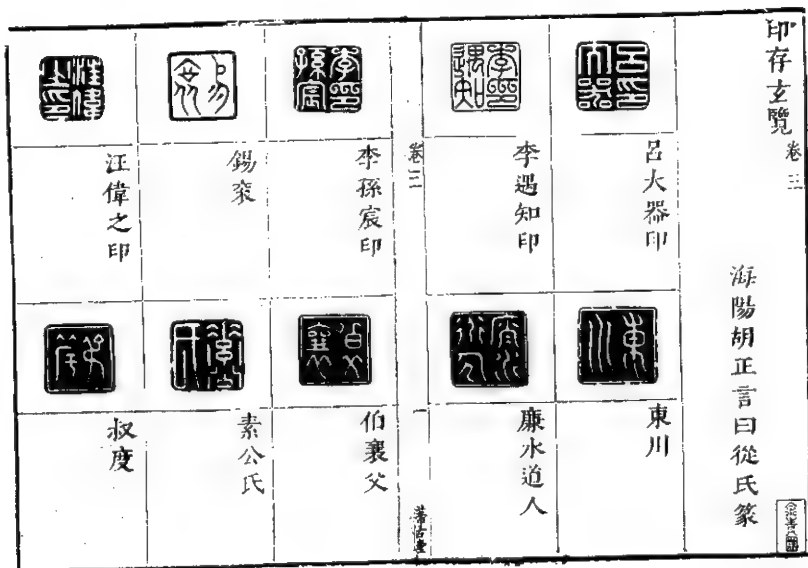 印存玄覽 卷三
海陽胡正言曰從氏篆
呂大器印
東川
李遇知印
廉水道人
卷三
蒂古堂
李孫宸印
伯襄父
錫袞
素公氏
汪偉之印
叔度